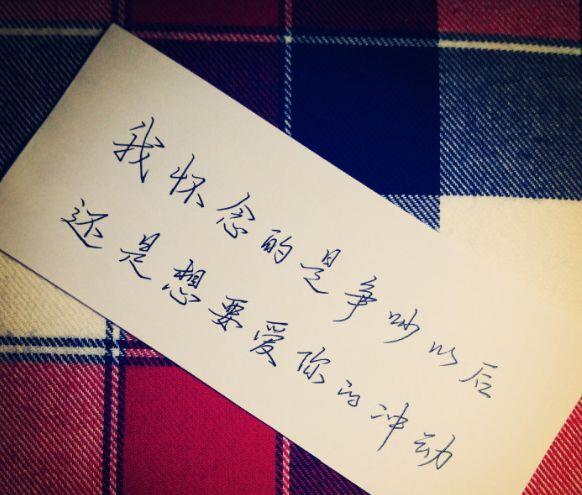 我怀念的是争吵以后
还是想要爱你的冲动